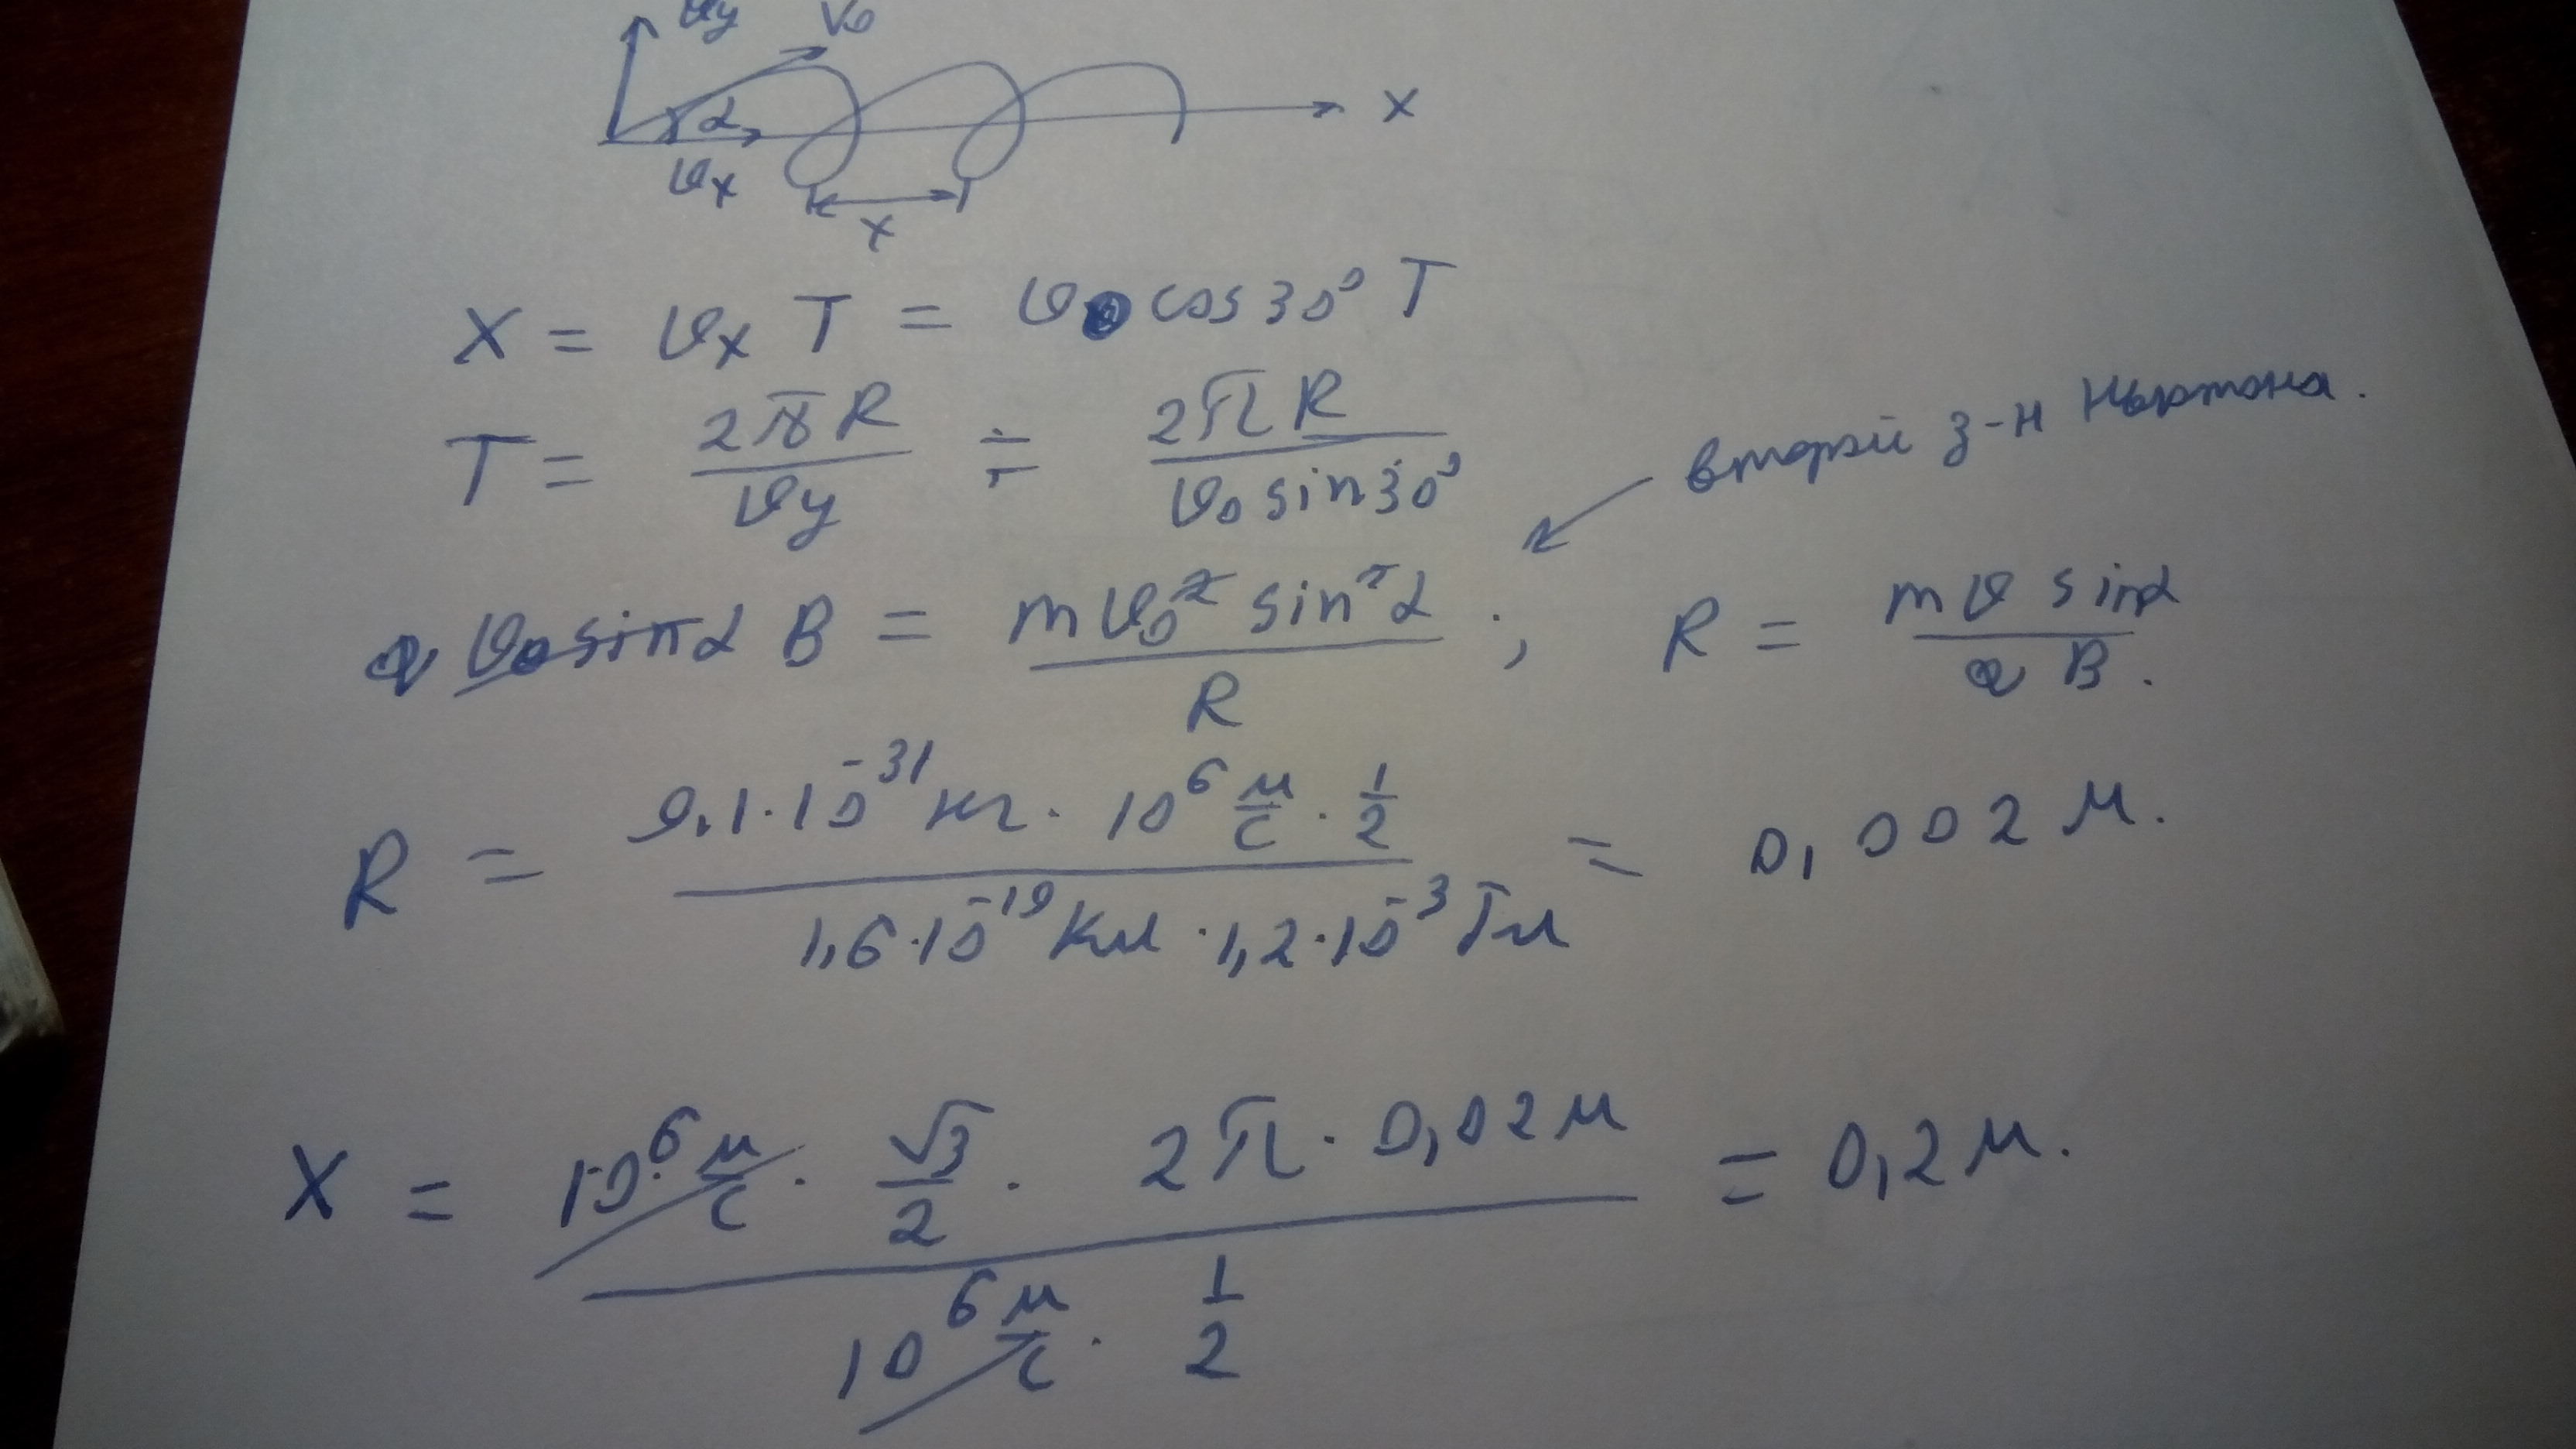 υy V₀
α x
υx
x
X = υx T = υ₀ cos 30° T
T = 2πR/υy = 2πR/(υ₀ sin 30°)
второй з-н Ньютона.
q υ₀ sin α B = m υ₀² sin² α / R ; R = m υ sin α / (q B).
R = (9,1·10⁻³¹ кг · 10⁶ м/с · 1/2) / (1,6·10⁻¹⁹ Кл · 1,2·10⁻³ Тл) = 0,002 м.
X = (10⁶ м/с · √3/2 · 2π · 0,02 м) / (10⁶ м/с · 1/2) = 0,2 м.